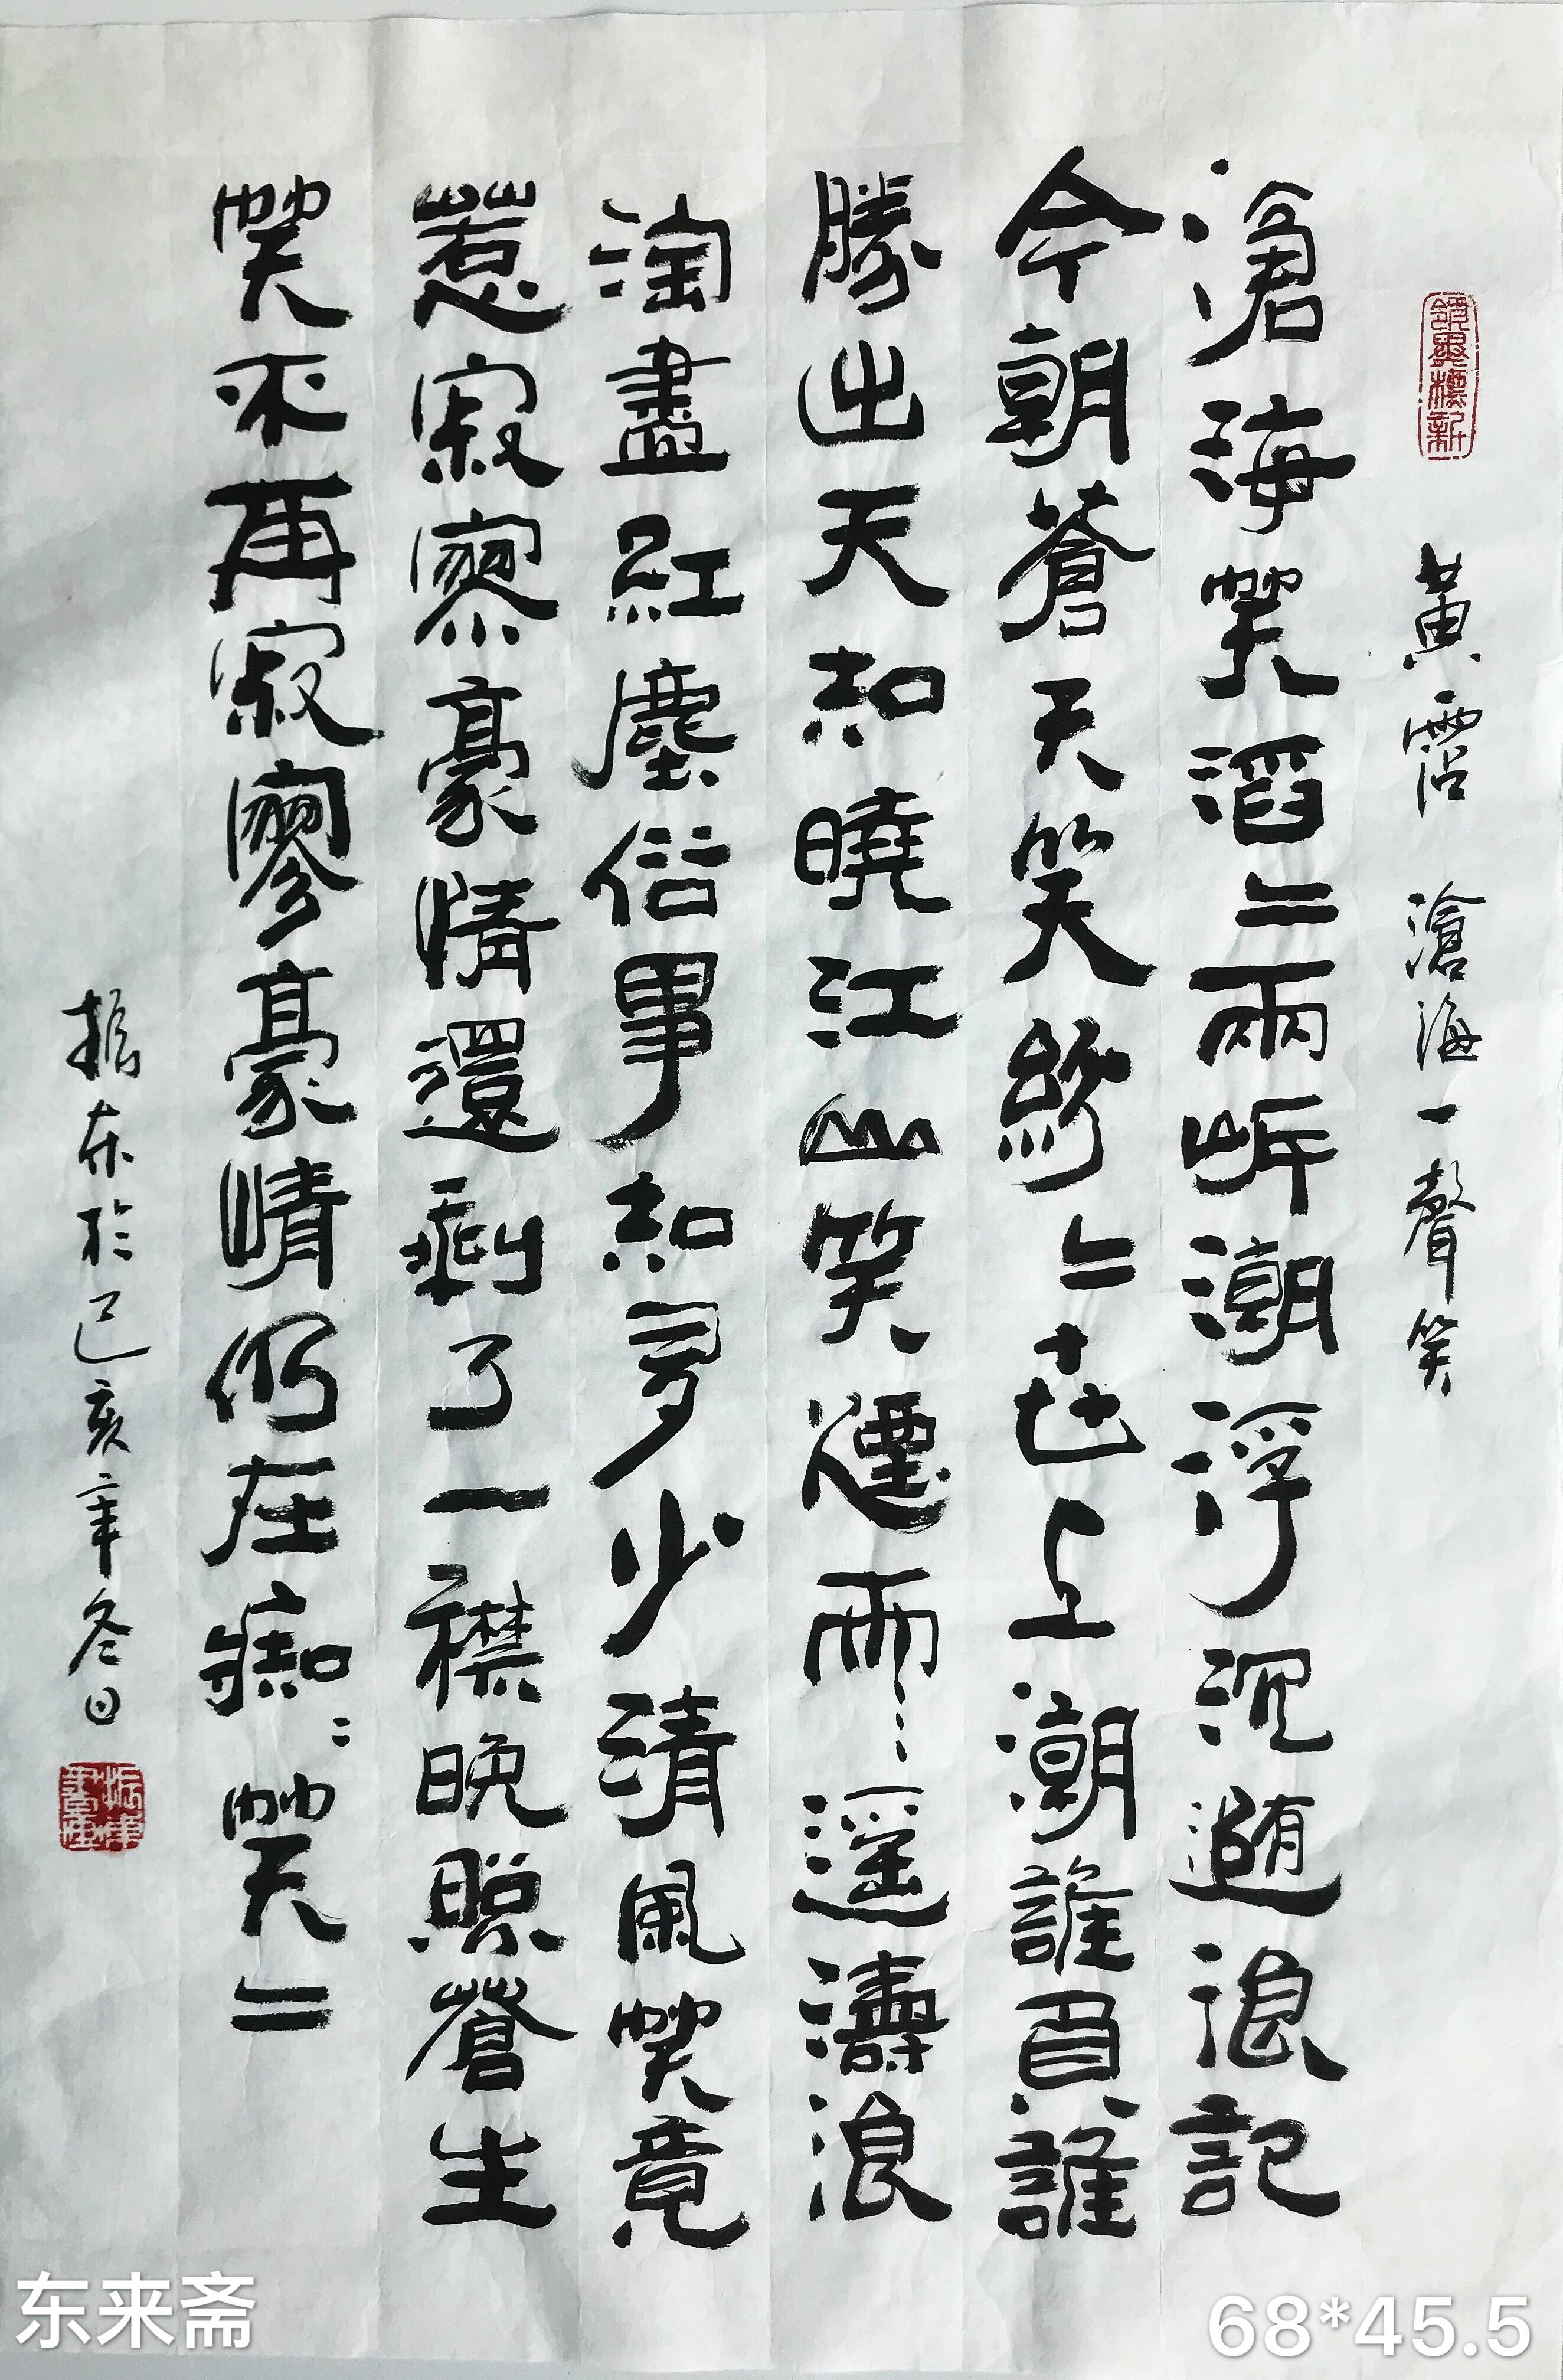 領異標新
黃霑 滄海一聲笑
滄海笑滔〻兩岸潮浮沉隨浪記
今朝蒼天笑紛〻世上潮誰負誰
勝出天知曉江山笑煙雨遥濤浪
淘盡紅塵俗事知多少清風笑竟
惹寂寥豪情還剩了一襟晚照蒼生
笑不再寂寥豪情仍在痴〻笑〻
振东於己亥年冬日
东来斋
68*45.5